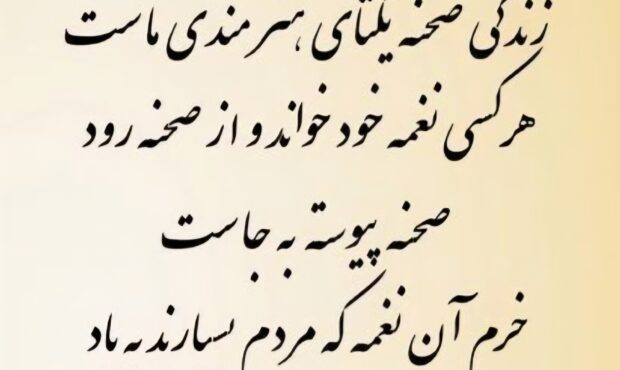 زندگی صحنه یکتای هنرمندی ماست
هرکسی نغمه خود خواند و از صحنه رود
صحنه پیوسته به جاست
خرم آن نغمه که مردم بسپارند به یاد